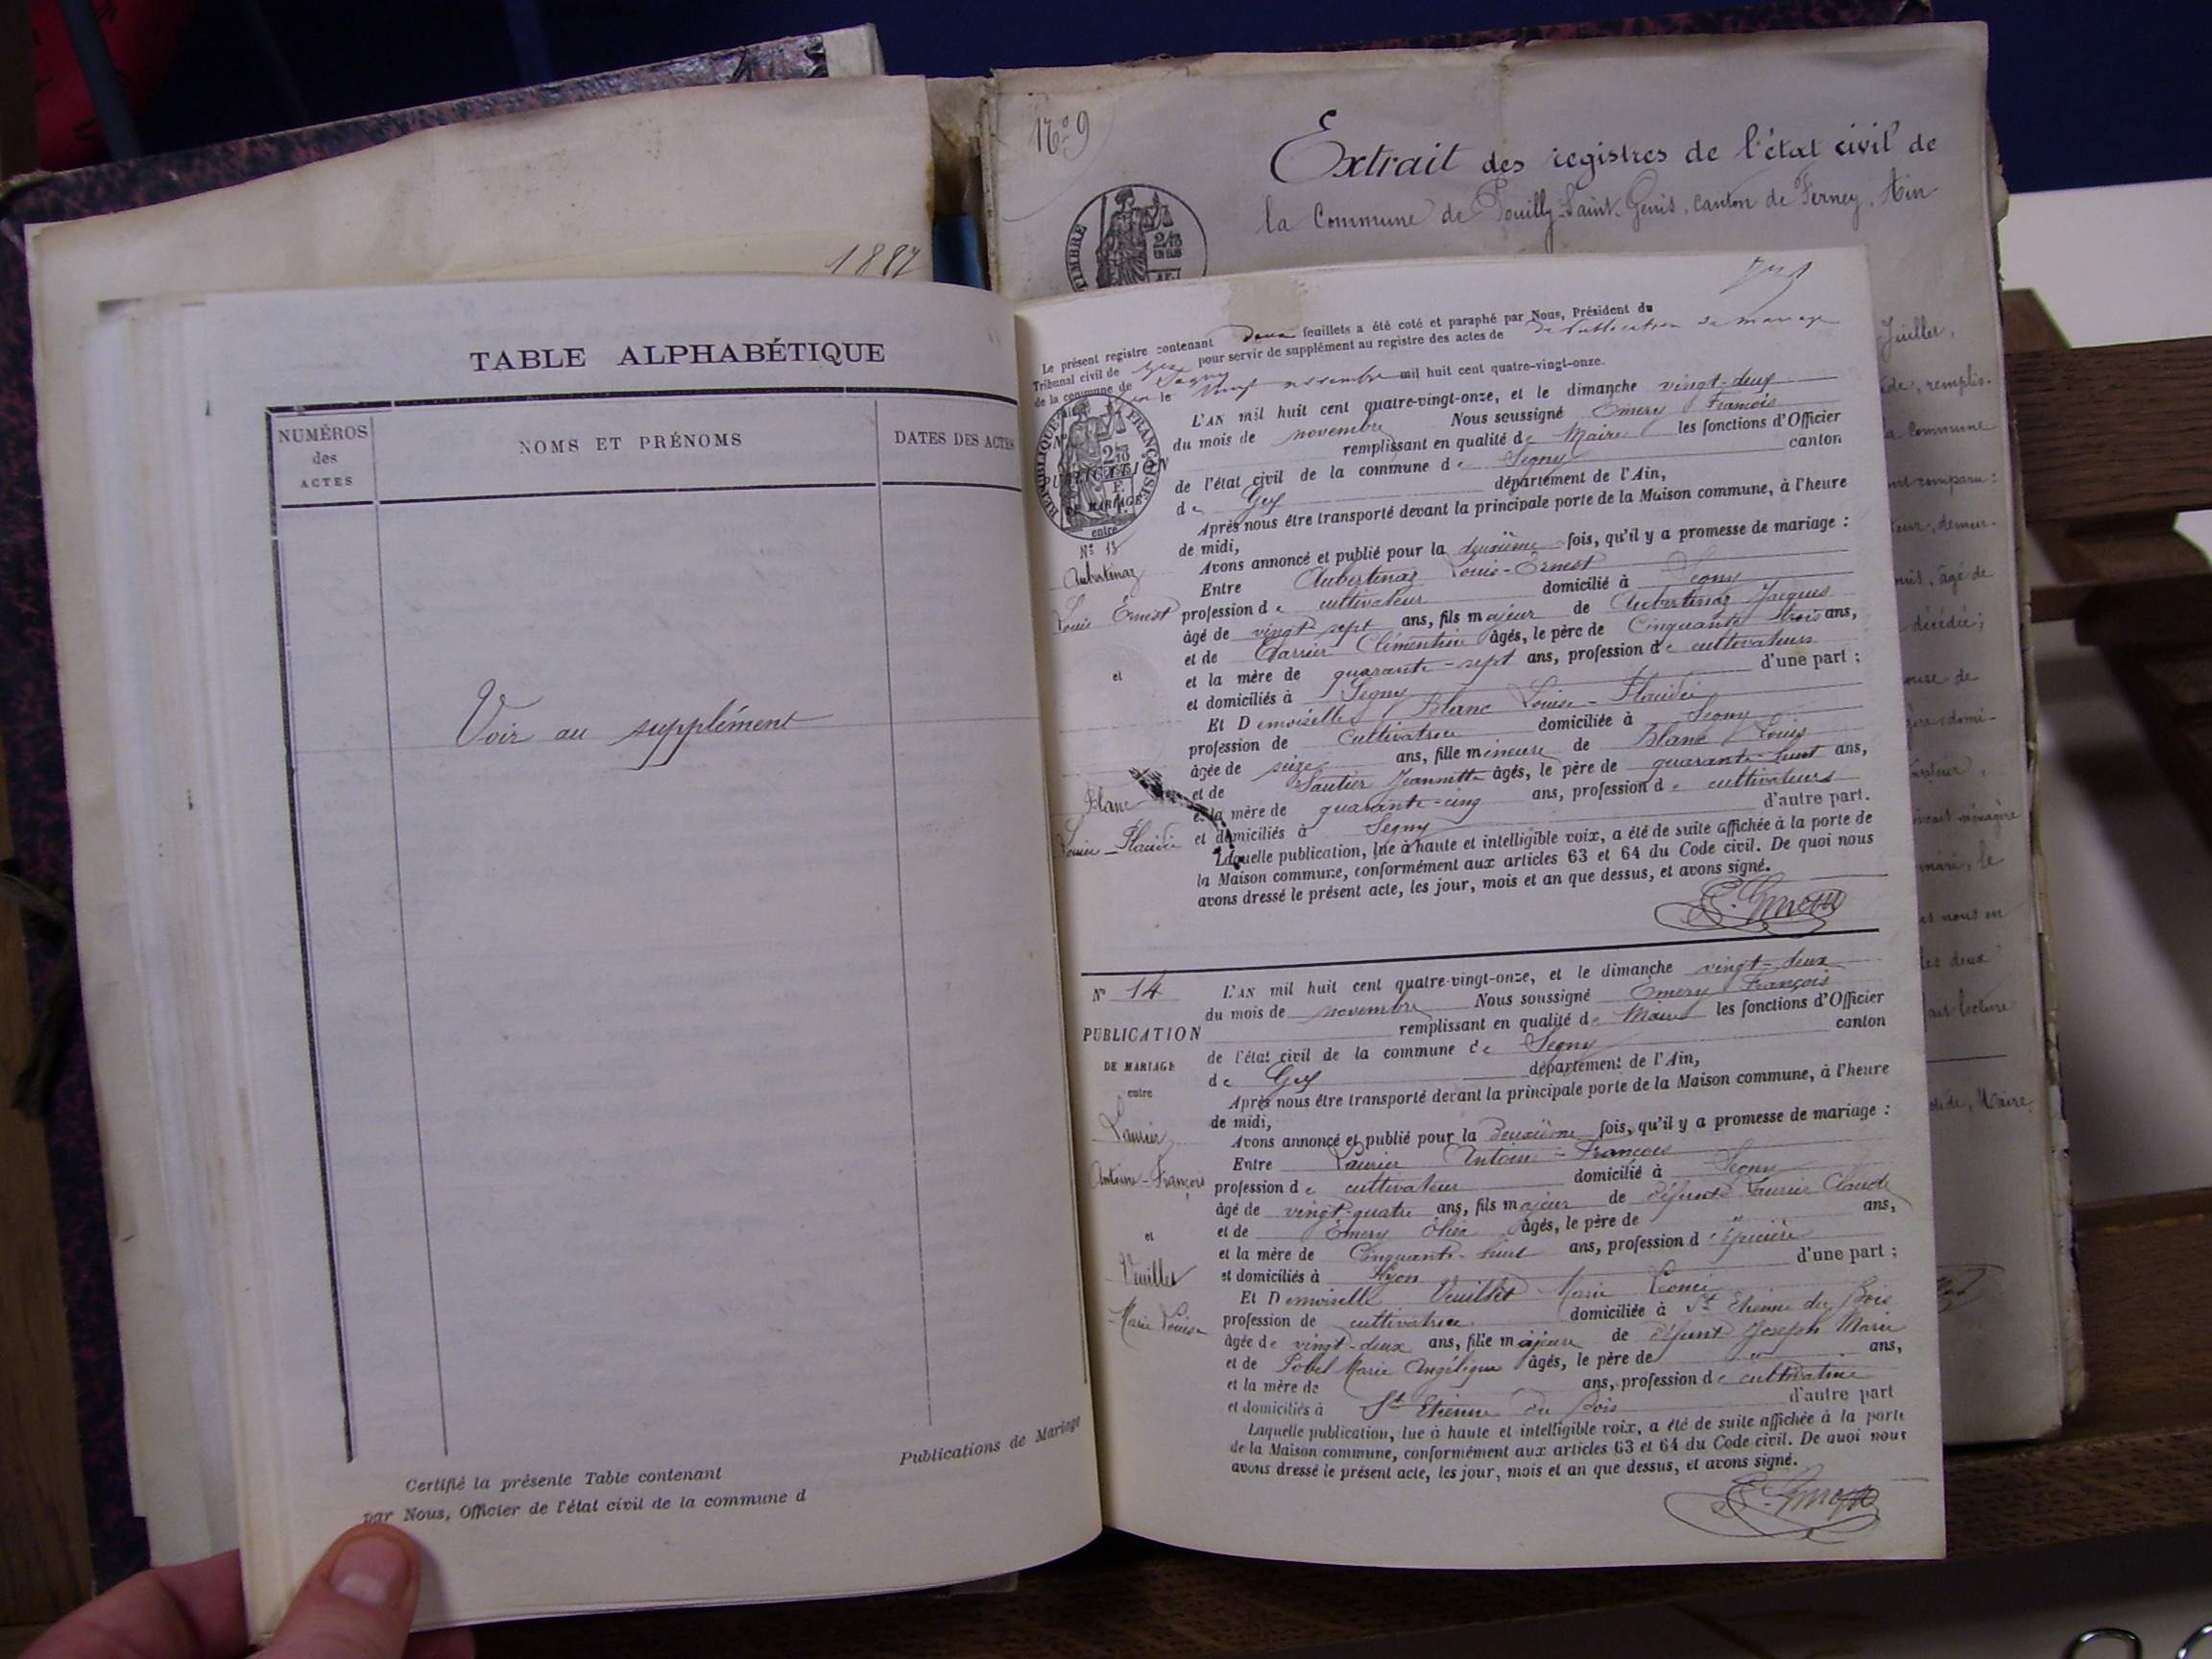 1887
TABLE ALPHABÉTIQUE
NUMÉROS
des
ACTES
NOMS ET PRÉNOMS
DATES DES ACTES
Voir au supplément
Certifié la présente Table contenant
Publications de Mariage
par Nous, Officier de l'état civil de la commune d
No 9
Extrait des registres de l'état civil de
la Commune de Pouilly-Saint-Genis, canton de Ferney, Ain
TIMBRE
Le présent registre contenant deux feuillets a été coté et paraphé par Nous, Président du
Tribunal civil de Gex pour servir de supplément au registre des actes de de Publication de mariage
de la commune de Segny
le novembre mil huit cent quatre-vingt-onze.
RÉPUBLIQUE FRANÇAISE
PUBLICATION
DE MARIAGE
entre
N° 13
Aubertinaz
Louis Ernest
et
Blanc
Louise-Claudie
L'AN mil huit cent quatre-vingt-onze, et le dimanche vingt-deux
du mois de novembre Nous soussigné Emery François
remplissant en qualité de Maire les fonctions d'Officier
de l'état civil de la commune de Segny canton
de Gex département de l'Ain,
Après nous être transporté devant la principale porte de la Maison commune, à l'heure
de midi,
Avons annoncé et publié pour la deuxième fois, qu'il y a promesse de mariage :
Entre Aubertinaz Louis-Ernest
profession de cultivateur domicilié à Segny
âgé de vingt sept ans, fils majeur de Aubertinaz Jacques
et de Clémentine âgés, le père de Cinquante trois ans,
et la mère de quarante-sept ans, profession de cultivateurs
et domiciliés à Segny d'une part ;
Et Demoiselle Blanc Louise-Claudie
profession de Cultivatrice domiciliée à Segny
âgée de seize ans, fille mineure de Blanc Louis
et de Sautier Jeannette âgés, le père de quarante-huit ans,
et la mère de quarante-cinq ans, profession de cultivateurs
et domiciliés à Segny d'autre part.
Laquelle publication, lue à haute et intelligible voix, a été de suite affichée à la porte de
la Maison commune, conformément aux articles 63 et 64 du Code civil. De quoi nous
avons dressé le présent acte, les jour, mois et an que dessus, et avons signé.
N° 14
PUBLICATION
DE MARIAGE
entre
Laurier
Antoine-François
et
Vuillet
Marie Louise
L'AN mil huit cent quatre-vingt-onze, et le dimanche vingt-deux
du mois de novembre Nous soussigné Emery François
remplissant en qualité de Maire les fonctions d'Officier
de l'état civil de la commune de Segny canton
de Gex département de l'Ain,
Après nous être transporté devant la principale porte de la Maison commune, à l'heure
de midi,
Avons annoncé et publié pour la deuxième fois, qu'il y a promesse de mariage :
Entre Laurier Antoine-François
profession de cultivateur domicilié à Segny
âgé de vingt-quatre ans, fils majeur de défunt Laurier Claude
et de Emery âgés, le père de " ans,
et la mère de Cinquante-huit ans, profession d'épicière
et domiciliés à d'une part ;
Et Demoiselle Vuillet Marie
profession de cultivatrice domiciliée à St Etienne du Bois
âgée de vingt-deux ans, fille majeure de défunt Joseph Marie
et de Pobel Marie Angélique âgés, le père de " ans,
et la mère de ans, profession de cultivatrice
et domiciliés à St Etienne du Bois d'autre part
Laquelle publication, lue à haute et intelligible voix, a été de suite affichée à la porte
de la Maison commune, conformément aux articles 63 et 64 du Code civil. De quoi nous
avons dressé le présent acte, les jour, mois et an que dessus, et avons signé.
Juillet,
remplis-
la Commune
comparu :
demeu-
âgé de
décédée;
nous en
les deux
lecture
Maire